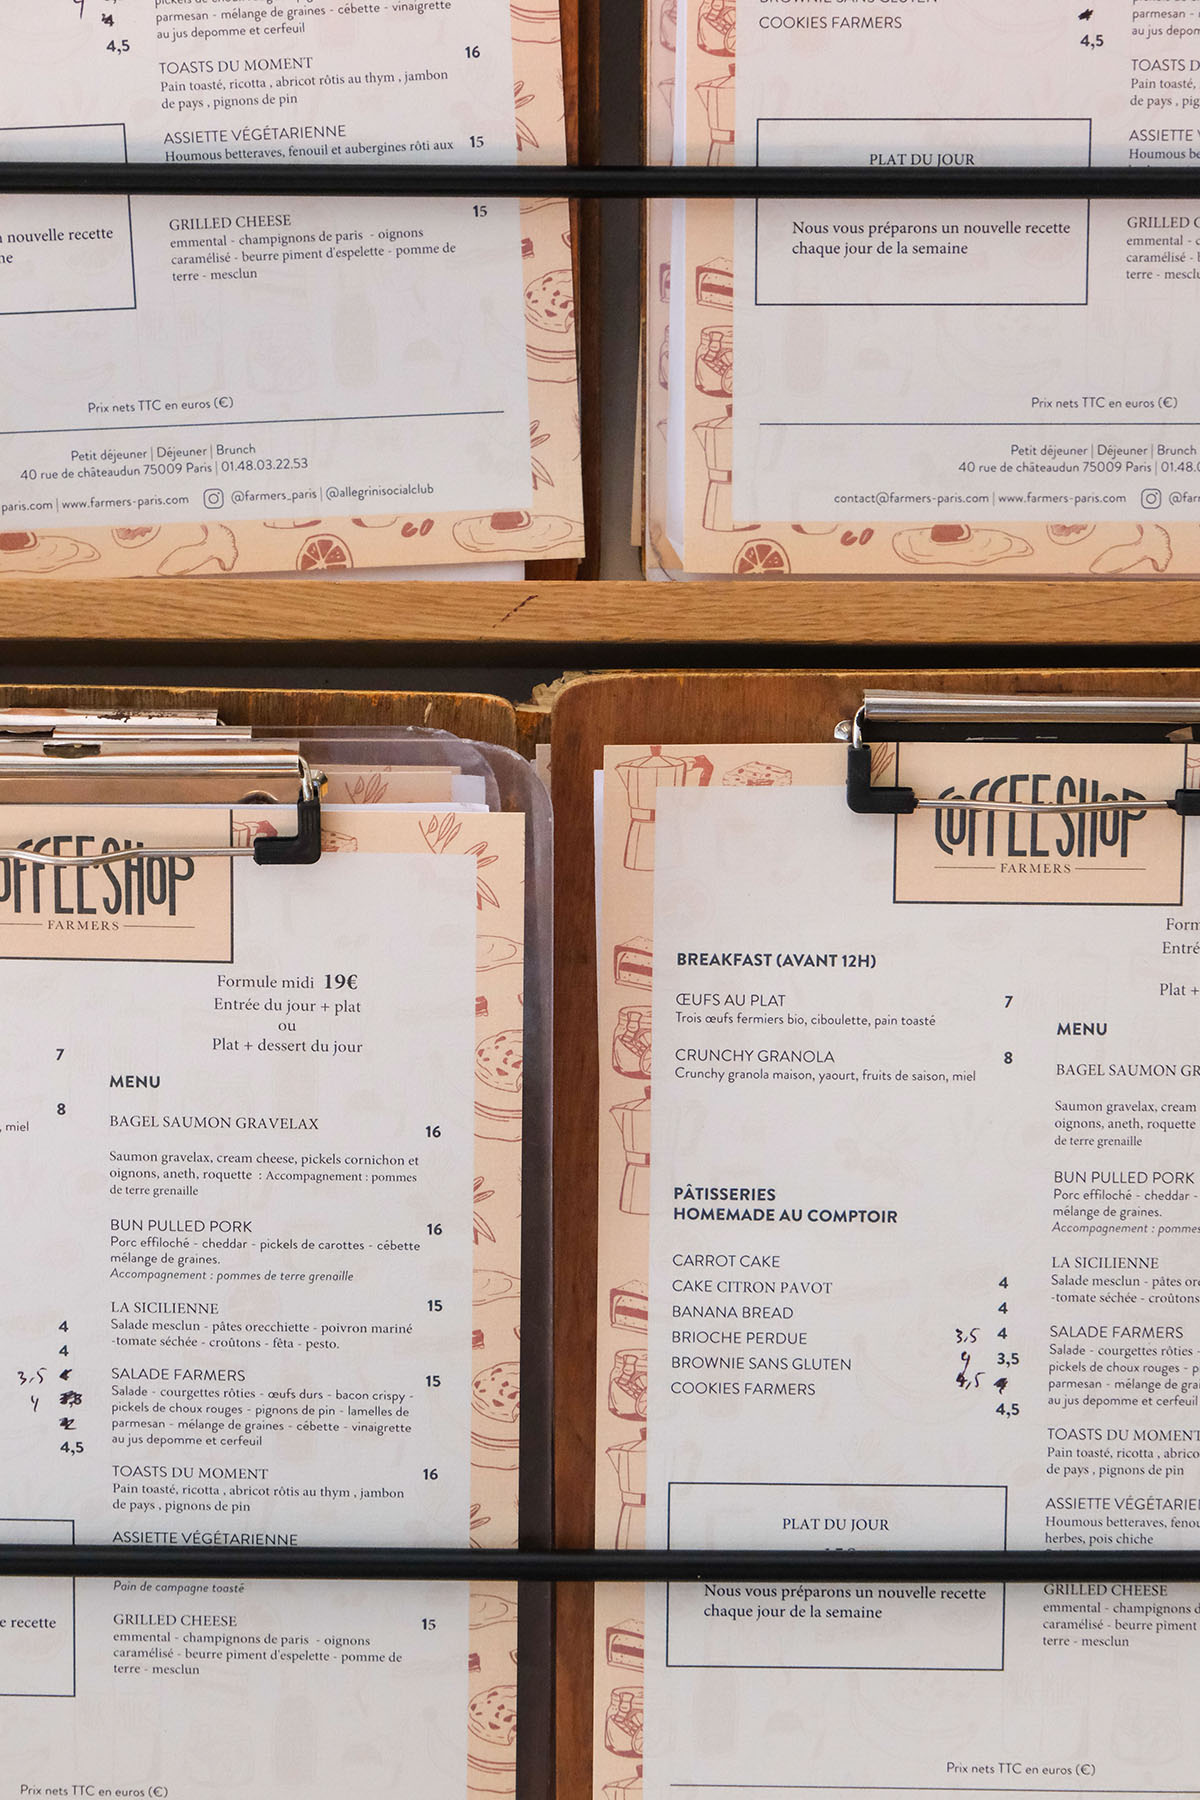 parmesan - mélange de graines - cébette - vinaigrette
4,5
au jus depomme et cerfeuil
TOASTS DU MOMENT 16
Pain toasté, ricotta , abricot rôtis au thym , jambon
de pays , pignons de pin
ASSIETTE VÉGÉTARIENNE 15
Houmous betteraves, fenouil et aubergines rôti aux
nouvelle recette
GRILLED CHEESE 15
emmental - champignons de paris - oignons
caramélisé - beurre piment d'espelette - pomme de
terre - mesclun
Prix nets TTC en euros (€)
Petit déjeuner | Déjeuner | Brunch
40 rue de châteaudun 75009 Paris | 01.48.03.22.53
paris.com | www.farmers-paris.com @farmers_paris | @allegrinisocialclub
COOKIES FARMERS
4,5
parmesan - mélange
au jus depom
TOASTS D
Pain toasté,
de pays , pig
PLAT DU JOUR
ASSIETTE V
Houmous be
Nous vous préparons un nouvelle recette
chaque jour de la semaine
GRILLED C
emmental - c
caramélisé - b
terre - mesclu
Prix nets TTC en euros (€)
Petit déjeuner | Déjeuner | Brunch
40 rue de châteaudun 75009 Paris | 01.48.0
contact@farmers-paris.com | www.farmers-paris.com @far
OFFEESHOP
FARMERS
Formule midi 19€
Entrée du jour + plat
ou
Plat + dessert du jour
7
8
, miel
MENU
BAGEL SAUMON GRAVELAX 16
Saumon gravelax, cream cheese, pickels cornichon et
oignons, aneth, roquette : Accompagnement : pommes
de terre grenaille
BUN PULLED PORK 16
Porc effiloché - cheddar - pickels de carottes - cébette
mélange de graines.
Accompagnement : pommes de terre grenaille
LA SICILIENNE 15
Salade mesclun - pâtes orecchiette - poivron mariné
-tomate séchée - croûtons - fêta - pesto.
4
4
3,5
4
4,5
SALADE FARMERS 15
Salade - courgettes rôties - œufs durs - bacon crispy -
pickels de choux rouges - pignons de pin - lamelles de
parmesan - mélange de graines - cébette - vinaigrette
au jus depomme et cerfeuil
TOASTS DU MOMENT 16
Pain toasté, ricotta , abricot rôtis au thym , jambon
de pays , pignons de pin
ASSIETTE VÉGÉTARIENNE
Pain de campagne toasté
e recette
GRILLED CHEESE 15
emmental - champignons de paris - oignons
caramélisé - beurre piment d'espelette - pomme de
terre - mesclun
Prix nets TTC en euros (€)
COFFEESHOP
FARMERS
BREAKFAST (AVANT 12H)
ŒUFS AU PLAT 7
Trois œufs fermiers bio, ciboulette, pain toasté
CRUNCHY GRANOLA 8
Crunchy granola maison, yaourt, fruits de saison, miel
PÂTISSERIES
HOMEMADE AU COMPTOIR
CARROT CAKE
CAKE CITRON PAVOT 4
BANANA BREAD 4
BRIOCHE PERDUE 3,5 4
BROWNIE SANS GLUTEN 4 3,5
COOKIES FARMERS 4,5
4,5
PLAT DU JOUR
Nous vous préparons un nouvelle recette
chaque jour de la semaine
Form
Entré
Plat +
MENU
BAGEL SAUMON GR
Saumon gravelax, cream
oignons, aneth, roquette
de terre grenaille
BUN PULLED PORK
Porc effiloché - cheddar -
mélange de graines.
Accompagnement : pommes
LA SICILIENNE
Salade mesclun - pâtes ore
-tomate séchée - croûtons
SALADE FARMERS
Salade - courgettes rôties -
pickels de choux rouges - p
parmesan - mélange de grai
au jus depomme et cerfeuil
TOASTS DU MOMENT
Pain toasté, ricotta , abrico
de pays , pignons de pin
ASSIETTE VÉGÉTARIE
Houmous betteraves, fenou
herbes, pois chiche
GRILLED CHEESE
emmental - champignons d
caramélisé - beurre piment
terre - mesclun
Prix nets TTC en euros (€)